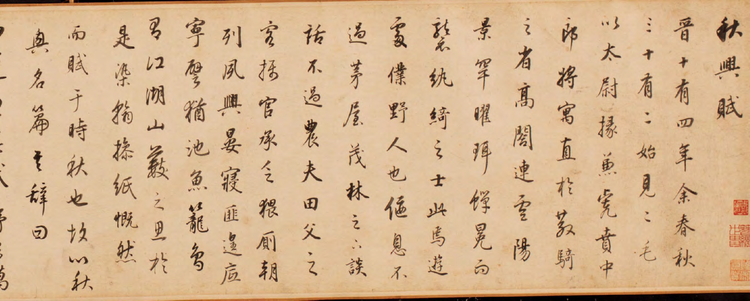 秋興賦
晉十有四年余春秋
三十有二始見二毛
以太尉掾兼虎賁中
郎將寓直於散騎
之省高閣連雲陽
景罕曜珥蟬冕而
襲紈綺之士此焉遊
處僕野人也偃息不
過茅屋茂林之下談
話不過農夫田父之
客攝官承乏猥廁朝
列夙興晏寢匪遑底
寧譬猶池魚籠鳥
有江湖山藪之思於
是染翰操紙慨然
而賦于時秋也故以秋
興名篇其辭曰